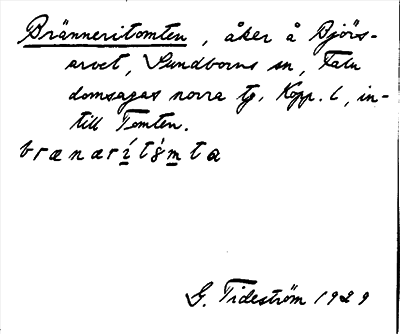 Bränneritomten, åker å Björs-
arvet, Sundborns sn, Falu
domsagas norra tg. Kopp. l, in-
till Tomten.
brænarítǻmta
G. Tideström 1929